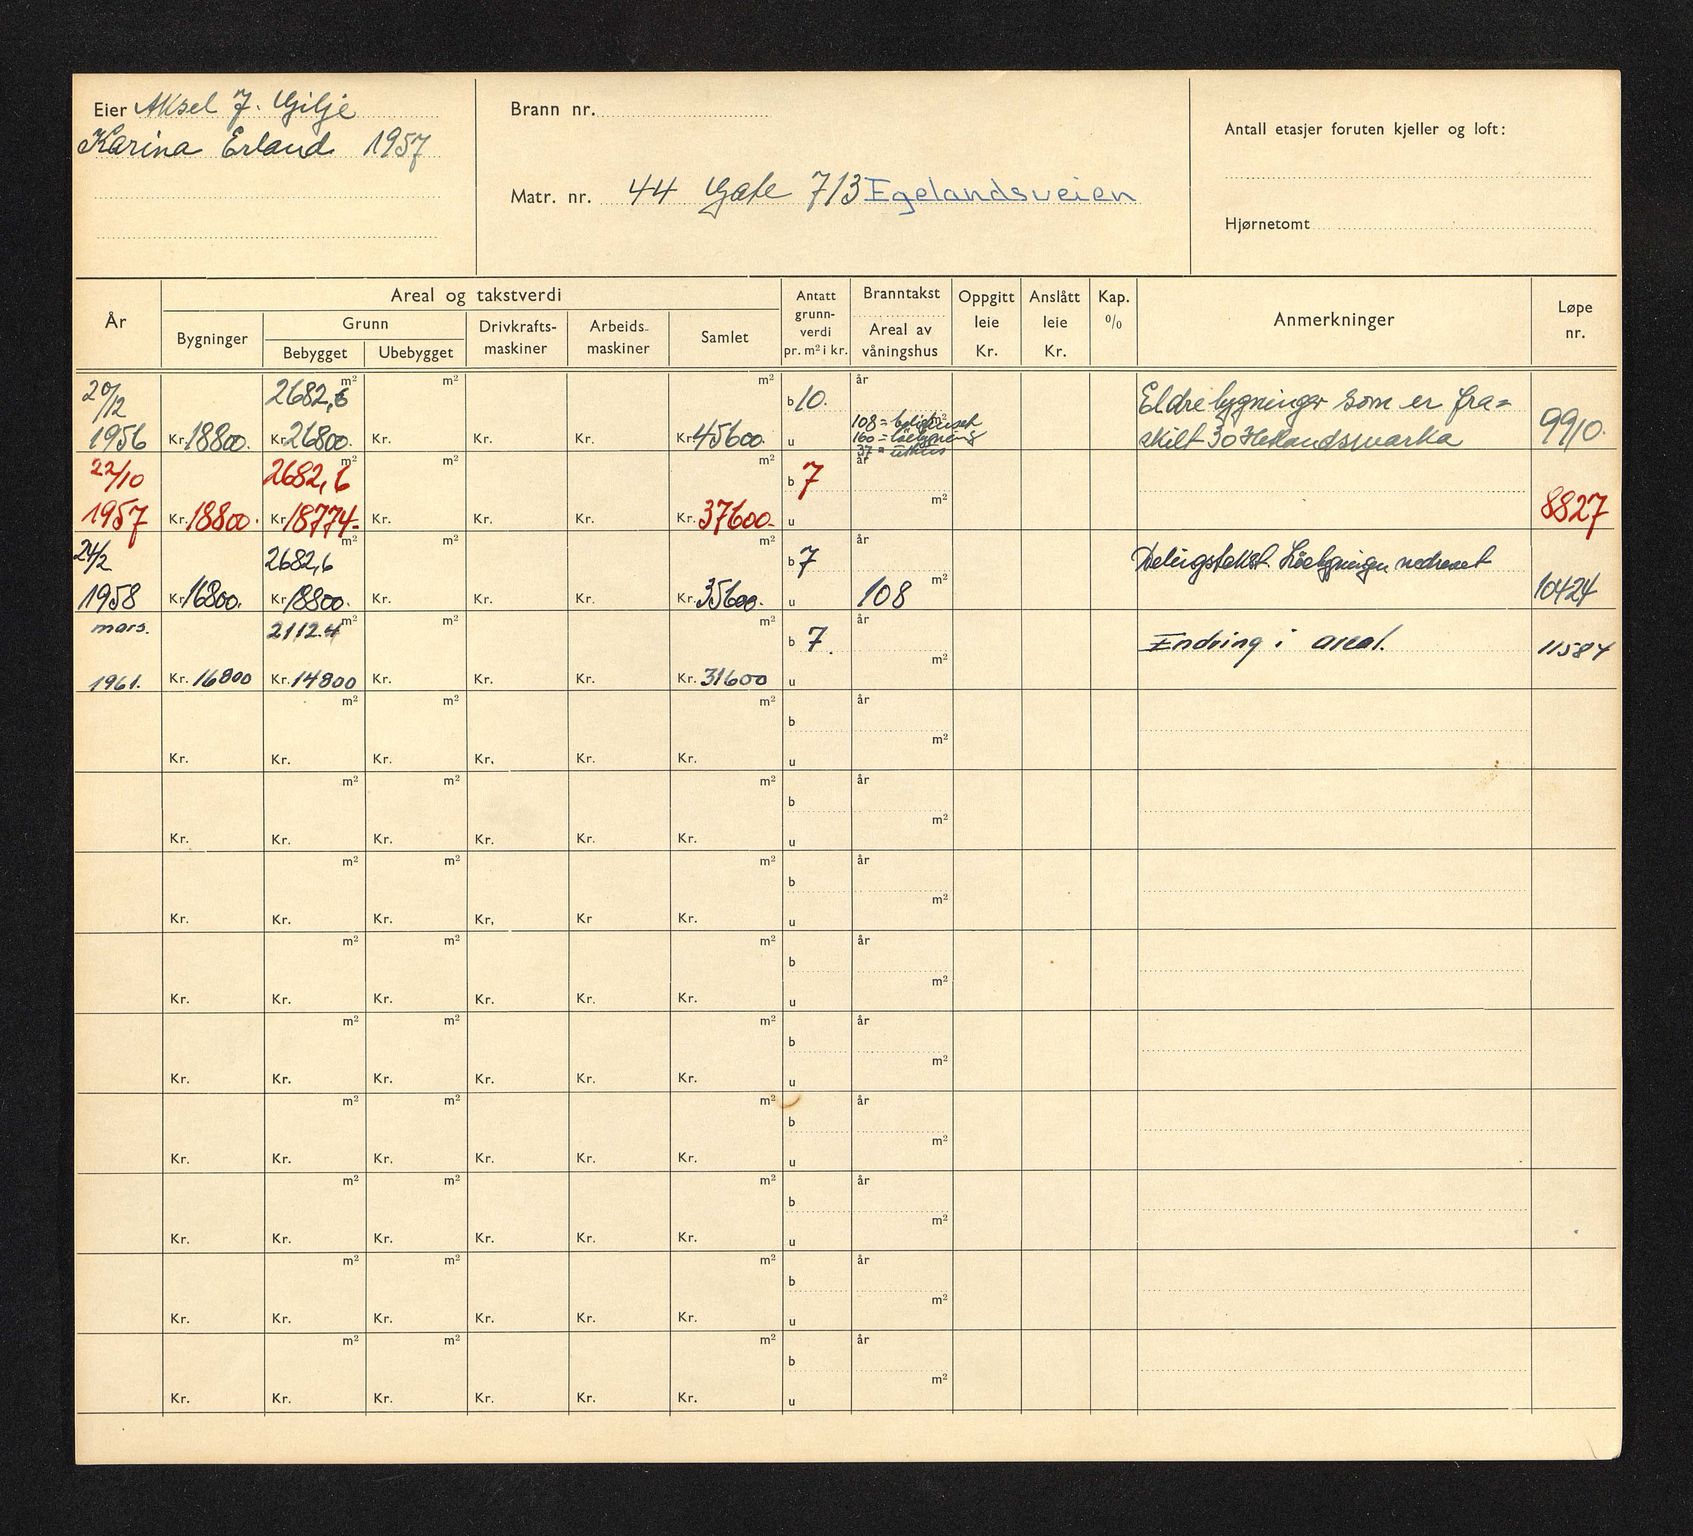 Eier Aksel J. Gilje
Karina Erland 1957
Brann nr.
Matr. nr. 44 Gate 713 Egelandsveien
Antall etasjer foruten kjeller og loft:
Hjørnetomt
År
Areal og takstverdi
Bygninger
Grunn
Bebygget Ubebygget
Drivkrafts-
maskiner
Arbeids-
maskiner
Samlet
Antatt
grunn-
verdi
pr. m² i kr.
Branntakst
Areal av
våningshus
Oppgitt
leie
Kr.
Anslått
leie
Kr.
Kap.
%
Anmerkninger
Løpe
nr.
20/12 2682,6 m² m² m² b 10. år Eldre bygninger som er fra=
108 = m²
160 = løebygning
1956 Kr. 18800. Kr. 26800. Kr. Kr. Kr. Kr. 45600. u skilt 30 Hetlandsmarka 9910.
37 = uthus
22/10 2682,6 m² m² m² b 7 år
1957 Kr. 18800. Kr. 18774.- Kr. Kr. Kr. Kr. 37600.- u m² 8827
24/2 2682,6 m² m² m² b 7 år Delingstakst. Løebygningen nedrevet
1958 Kr. 16800. Kr. 18800. Kr. Kr. Kr. Kr. 35600.- u 108 m² 10424
mars. 2112.4 m² m² m² b 7. år Endring i areal. 11584
1961. Kr. 16800 Kr. 14800 Kr. Kr. Kr. Kr. 31600 u m²
m² m² m² b år
Kr. Kr. Kr. Kr. Kr. Kr. u m²
m² m² m² b år
Kr. Kr. Kr. Kr. Kr. Kr. u m²
m² m² m² b år
Kr. Kr. Kr. Kr. Kr Kr. u m²
m² m² m² b år
Kr. Kr. Kr. Kr. Kr. Kr. u m²
m² m² m² b år
Kr. Kr. Kr. Kr. Kr. Kr. u m²
m² m² m² b år
Kr. Kr. Kr. Kr. Kr. Kr. u m²
m² m² m² b år
Kr. Kr. Kr. Kr. Kr. Kr. u m²
m² m² m² b år
Kr. Kr. Kr. Kr. Kr. Kr. u m²
m² m² m² b år
Kr. Kr. Kr. Kr. Kr. Kr. u m²